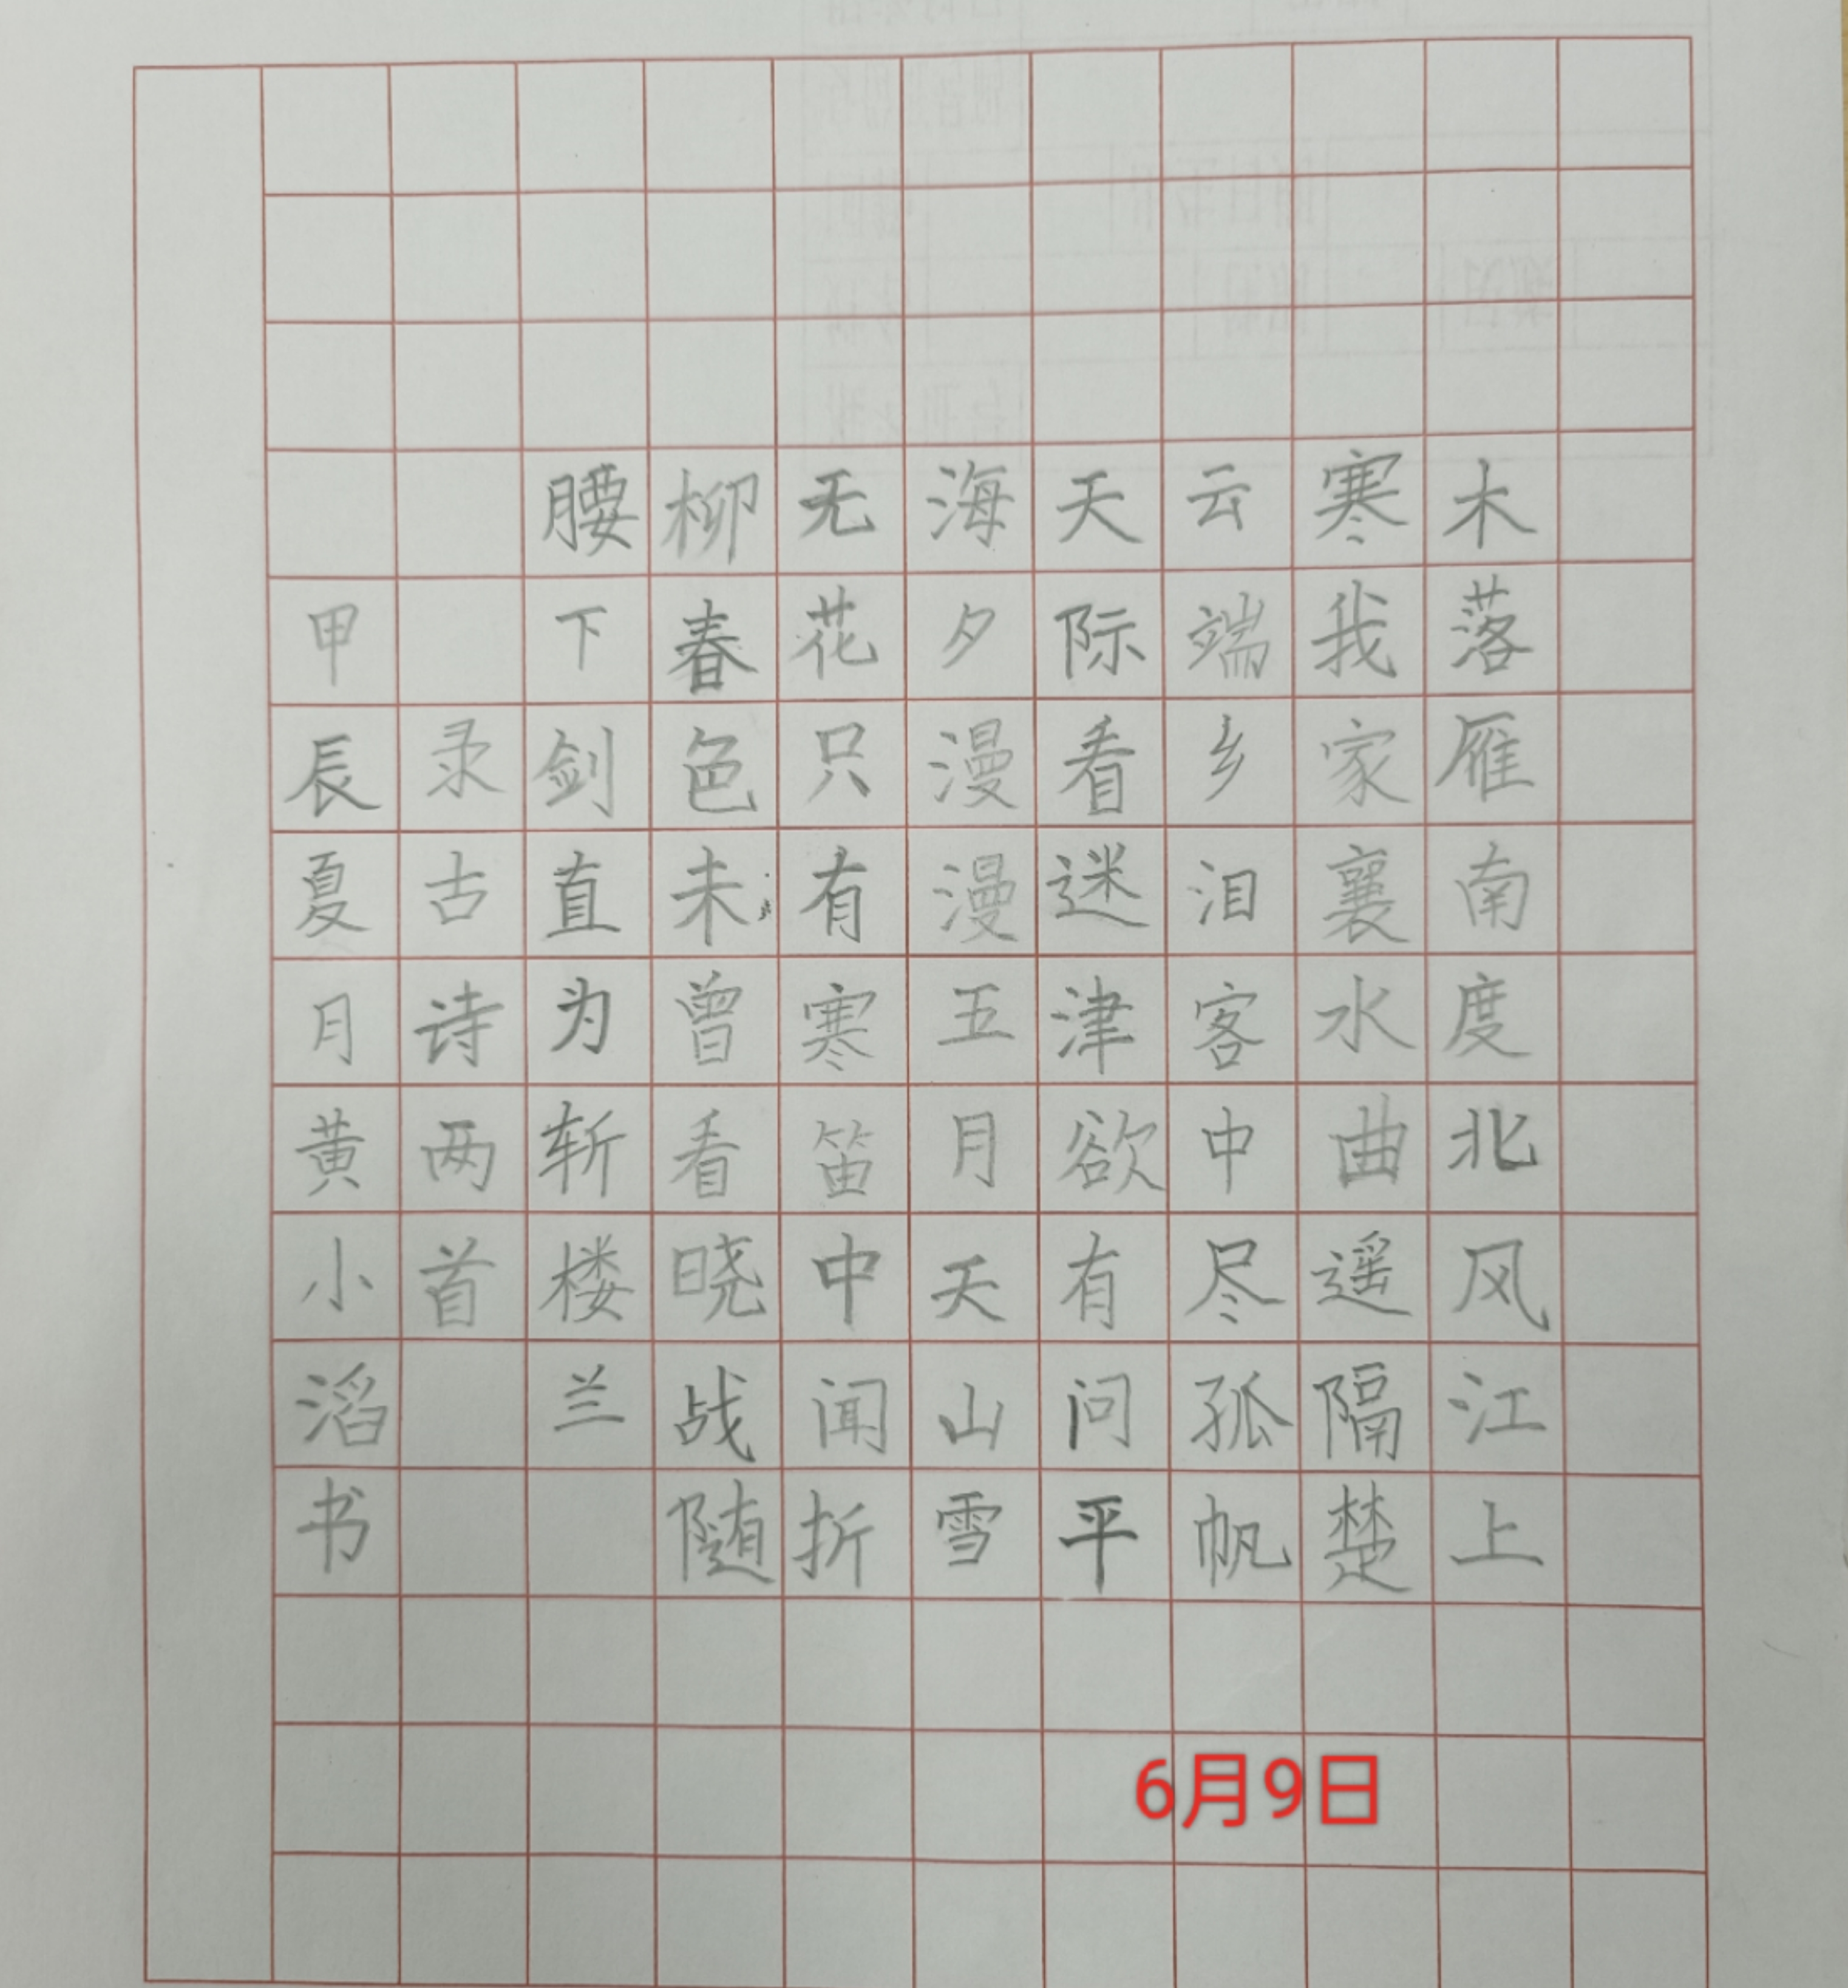 木落雁南度北风江上
寒我家襄水曲遥隔楚
云端乡泪客中尽孤帆
天际看迷津欲有问平
海夕漫漫五月天山雪
无花只有寒笛中闻折
柳春色未曾看晓战随
腰下剑直为斩楼兰
录古诗两首
甲辰夏月黄小滔书
6月9日